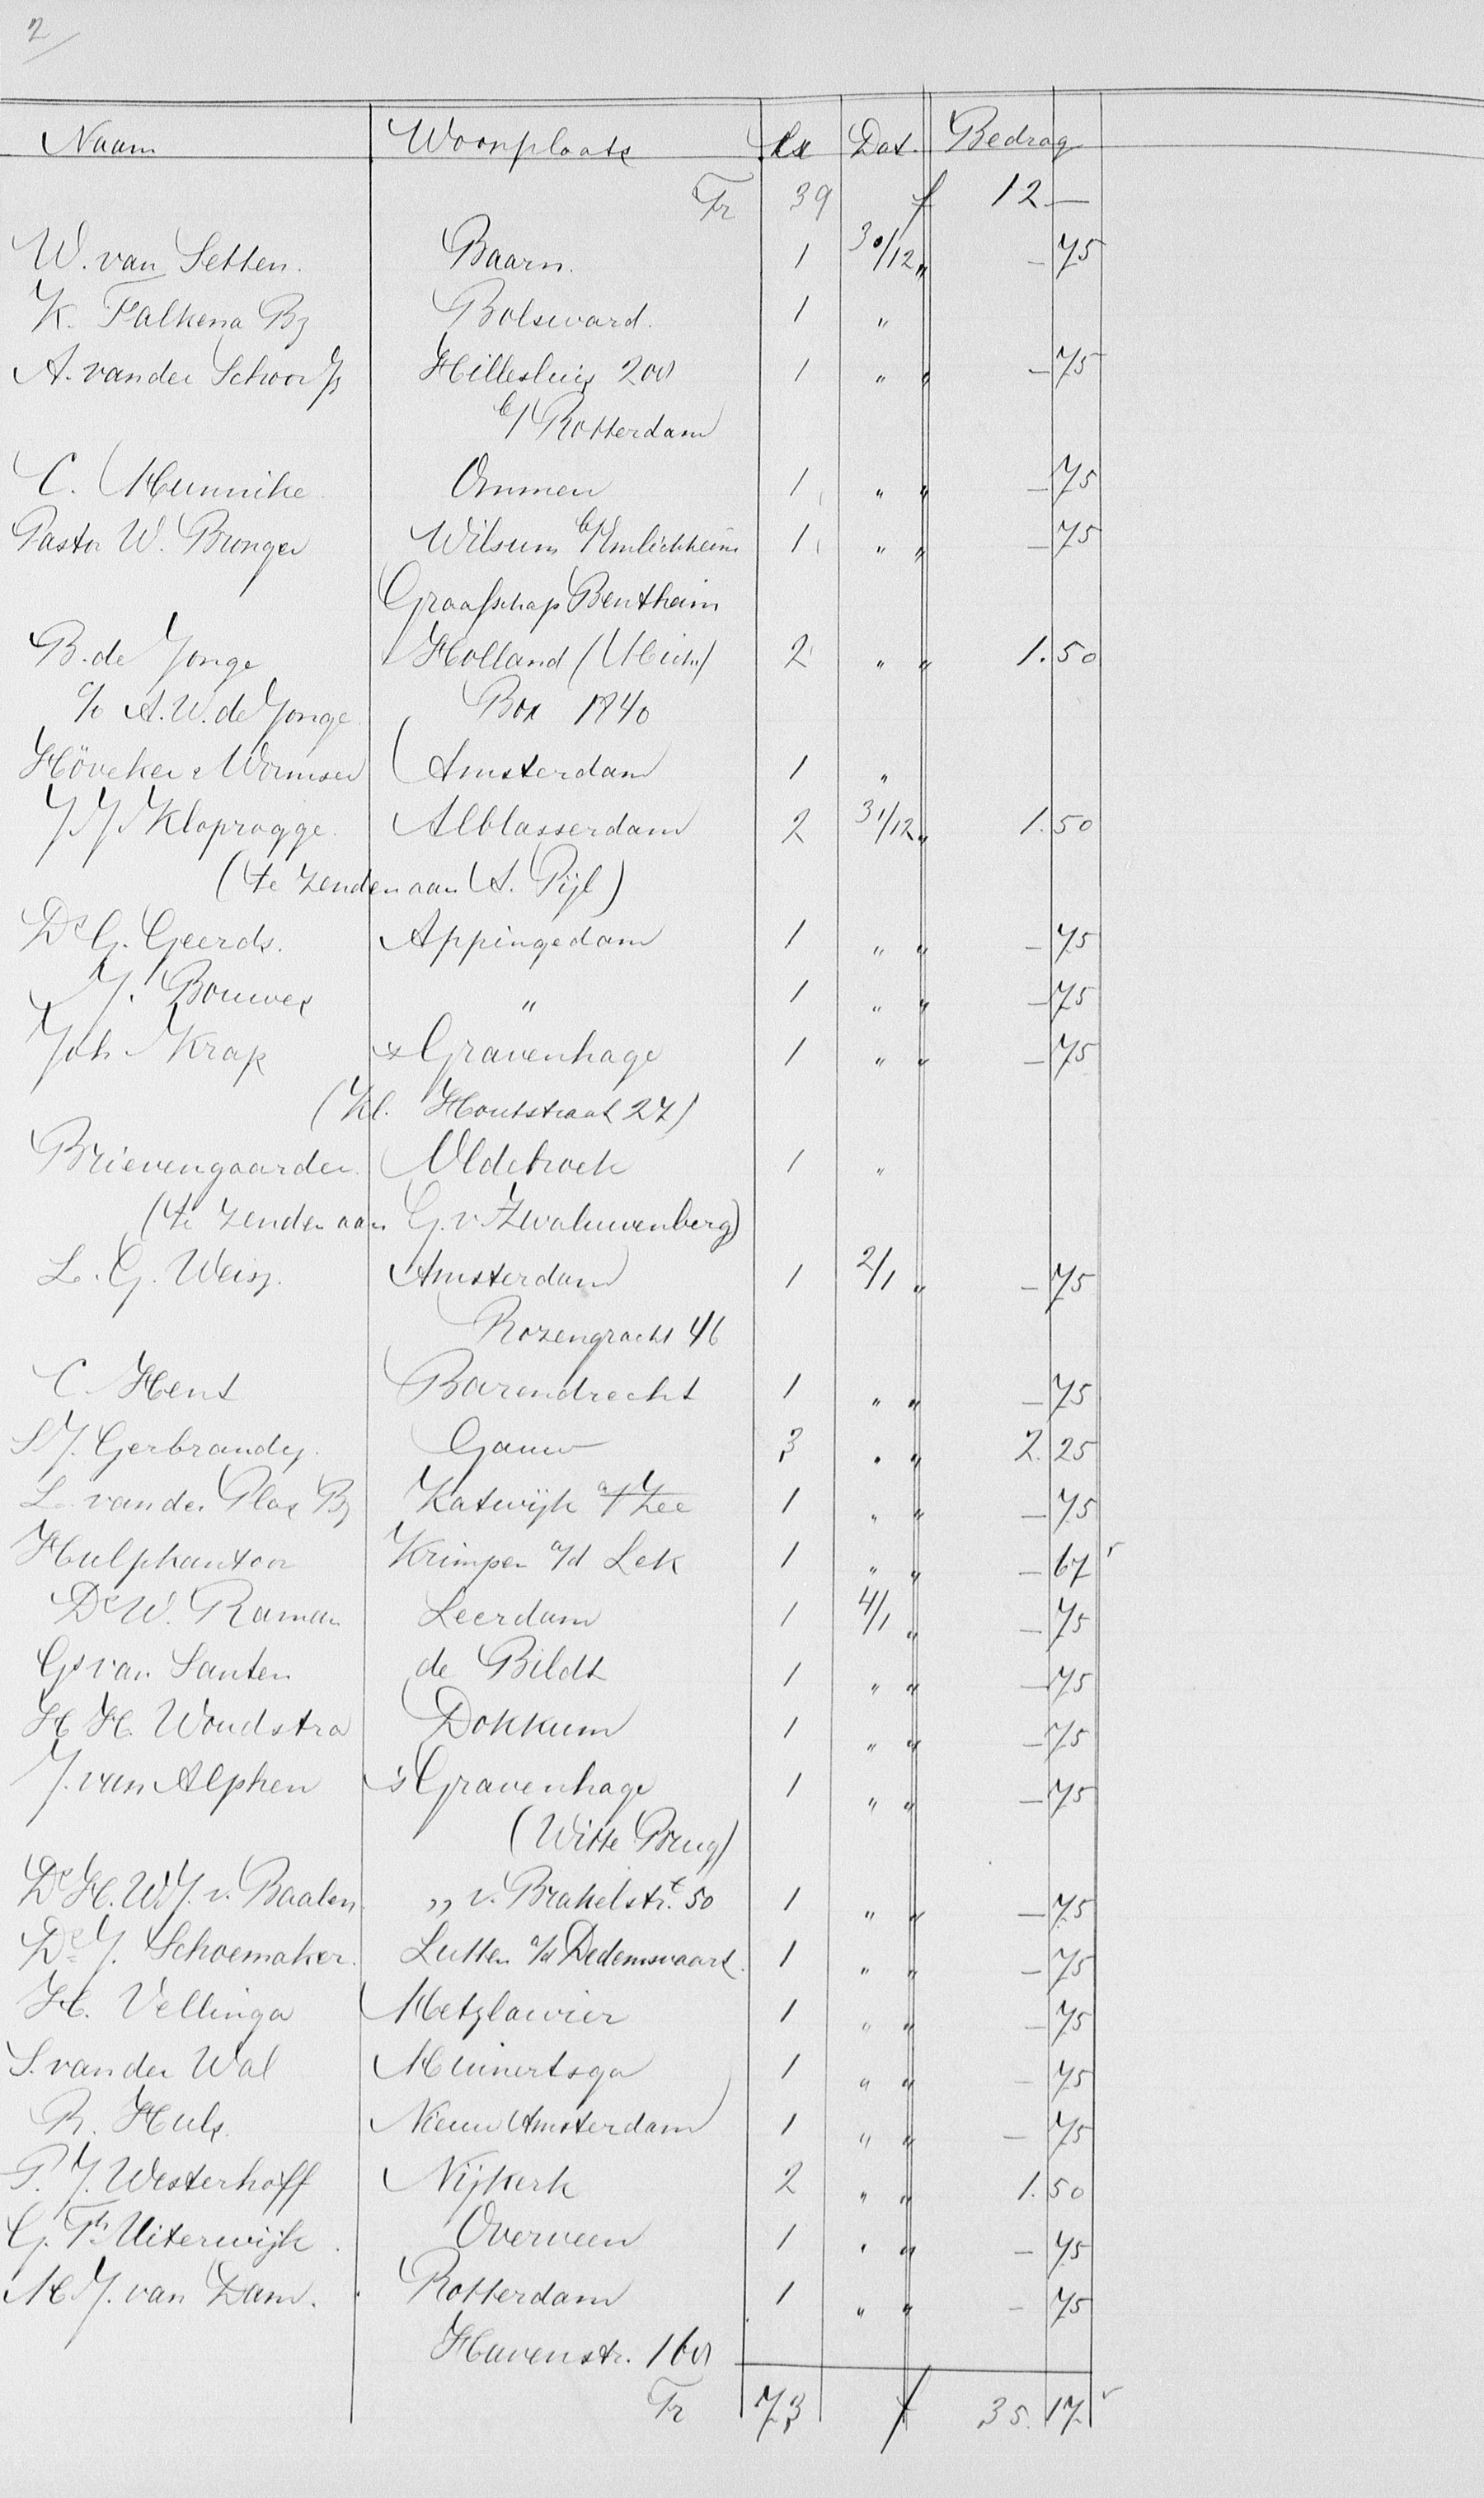 2
Naam Woonplaats Ex Dat. Bedrag
Tr 39 f 12 —
W. van Setten. Baarn. 1 30/12 " — 75
K. Falkena Bz Bolsward. 1 "
A. van der Schoor Jz Hillesluis 200 1 " " — 75
b/ Rotterdam
C. Hunnike Ommen 1 " " — 75
Pastor W. Bronger Wilsum b/Emlichheim 1 " " — 75
Graafschap Bentheim
B. de Jonge Holland (Mich) 2 " " 1. 50
c/o A. W. de Jonge Box 1840
Höveker & Wormser Amsterdam 1 "
J J Kloprogge Alblasserdam 2 31/12 " 1. 50
(te zenden aan A. Pijl)
Ds G. Geerds. Appingedam 1 " " — 75
J. Bouwes " 1 " " — 75
Joh Krap s Gravenhage 1 " " — 75
(Kl. Houtstraat 27)
Brievengaarder Oldebroek 1 "
(te zenden aan G. v. Zwaluwenberg)
L. G. Weisz. Amsterdam 1 2/1 " — 75
Rozengracht 46
C. Hent Barendrecht 1 " " — 75
S J. Gerbrandy. Gauw 3 " " 2. 25
L. van der Plas Bz Katwijk a/Zee 1 " " — 75
Hulpkantoor Krimpen a/d Lek 1 " " — 67
Ds W. Raman Leerdam 1 4/1 " — 75
Gs van Santen de Bildt 1 " " — 75
H. H. Woudstra Dokkum 1 " " — 75
J. van Alphen 's Gravenhage 1 " " — 75
(Witte Brug)
Ds H. W J. v. Baalen ,, v. Brakelstr.t 50 1 " " — 75
Ds J. Schoemaker. Lutten a/d Dedemsvaart. 1 " " — 75
H. Vellinga Metzlawier 1 " " — 75
S. van der Wal Minnertsga 1 " " — 75
R. Huls. Nieuw Amsterdam 1 " " — 75
P. J. Westerhoff Nijkerk 2 " " 1. 50
G. Th. Uiterwijk. Overveen 1 " " — 75
M. J. van Dam. Rotterdam 1 " " — 75
Havenstr. 160
Tr 73 f 35. 17